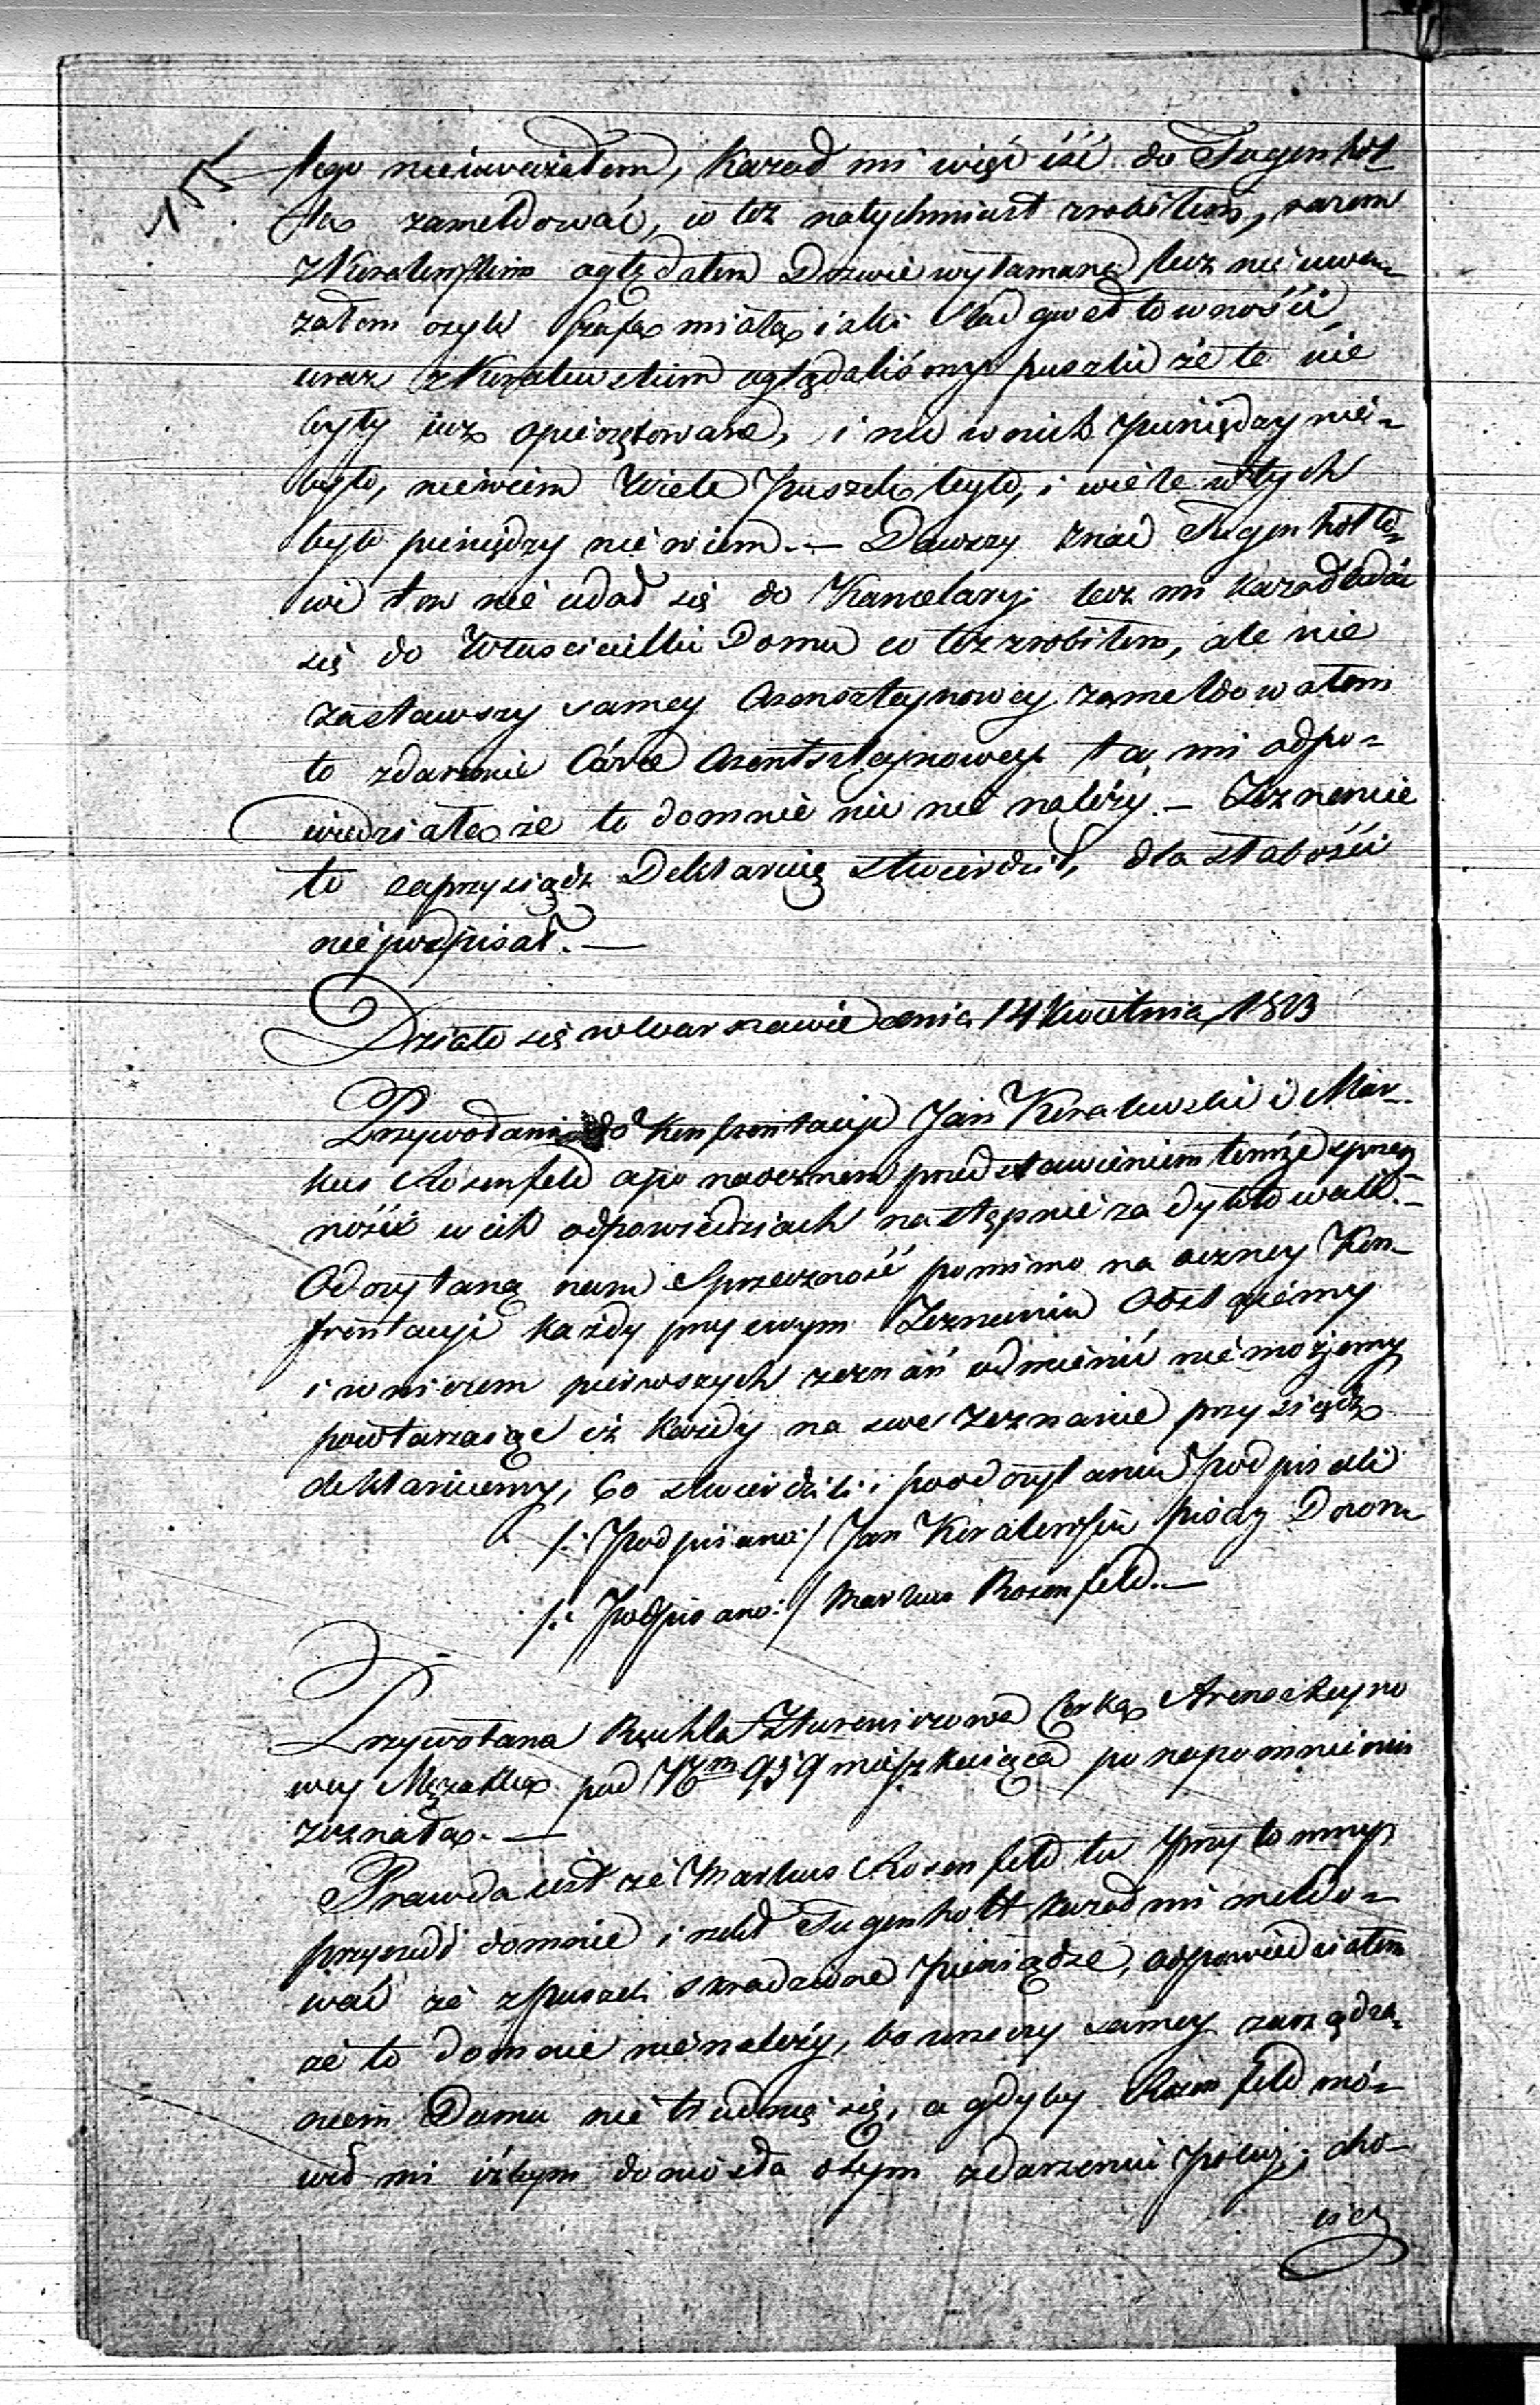 155
tego nieuważałem, kazał mi więc iść do Tugenhol
da zameldować, co też natychmiast zrobiłem, razem
z Kiralewskim oglądałem Drzwi wyłamane lecz nie uwa=
załem czyli szafa miała iaki ślad gwałtowności
wraz z Kiralewskim oglądaliśmy puszki że te nie
były iuż opieczętowane, i nic w nich pieniędzy nie=
było, niewiem Wiele Puszek było, i wiele w tych
było pieniędzy nie wiem. — Dawszy znać Tugenholdo=
wi ten nie udał się do Kancelaryi lecz mi kazał udać
się do Właścicielki Domu co też zrobiłem, ale nie
zastawszy samey Arensztejnowey zameldowałem
to zdarzenie Córce Arentsztejnowey ta mi odpo=
wiedziała że to do mnie nic nie należy. — Zeznanie
to zaprzysiądz Deklaruię stwierdził, dla słabości
nie podpisał. —
Działo się w Warszawie dnia 14 Kwietnia 1823
Przywołani do Konfrontacyi Jan Kiralewski i Mar=
kus Rosenfeld a po naocznem przedstawieniem temże sprzecz=
ność w ich odpowiedziach następnie zadyktowali. —
Odczytaną nam sprzeczność pomimo na oczney Kon=
frontacyi każdy przy swym Zeznaniu Obstaiemy
i w niczem pierwszych zeznań odmienić nie możemy
powtarzaiąc iż każdy na swe zeznanie przysiądz
deklaruiemy, Co stwierdzili i po odczytaniu podpisali
/: Podpisano :/ Jan Kiralewski pisarz Dozoru
/: Podpisano :/ Markus Rosenfeld. —
Przywołana Ruchla Córka Arensztejno
wey Mężatka pod Nrm 959 mieszkaiąca po napomnieniu
zeznała. —
Prawda iest że Markus Rosenfeld tu przytomny
przyszedł do mnie i rzekł Tugenholdt kazał mi meldo=
wać że z puszek skradzione pieniądze, odpowiedziałem
że to do mnie nie należy, bo w rzeczy samey zarządza=
niem Domu nie trudnię się, a gdyby Rosenfeld mó=
wił mi iżbym doniosła o tym zdarzeniu Policyi, cho=
ciaż